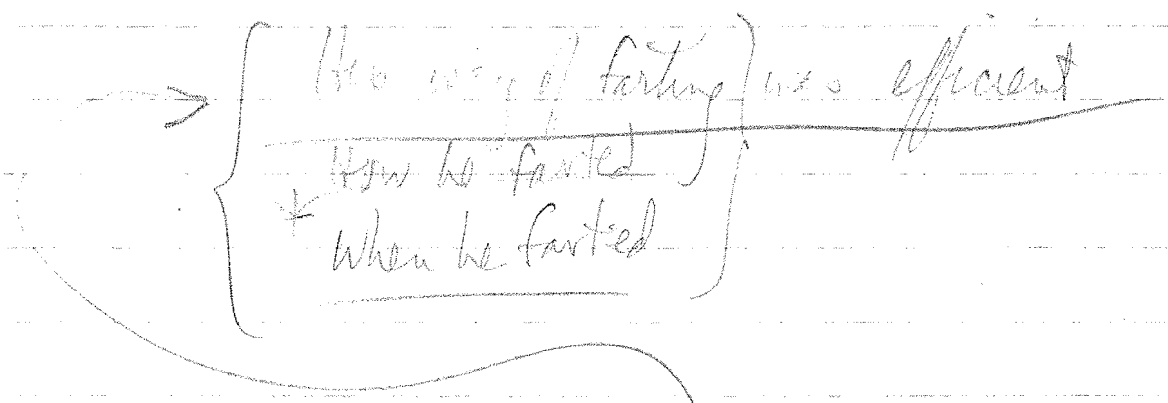 His way of farting was efficient
How he farted
When he farted